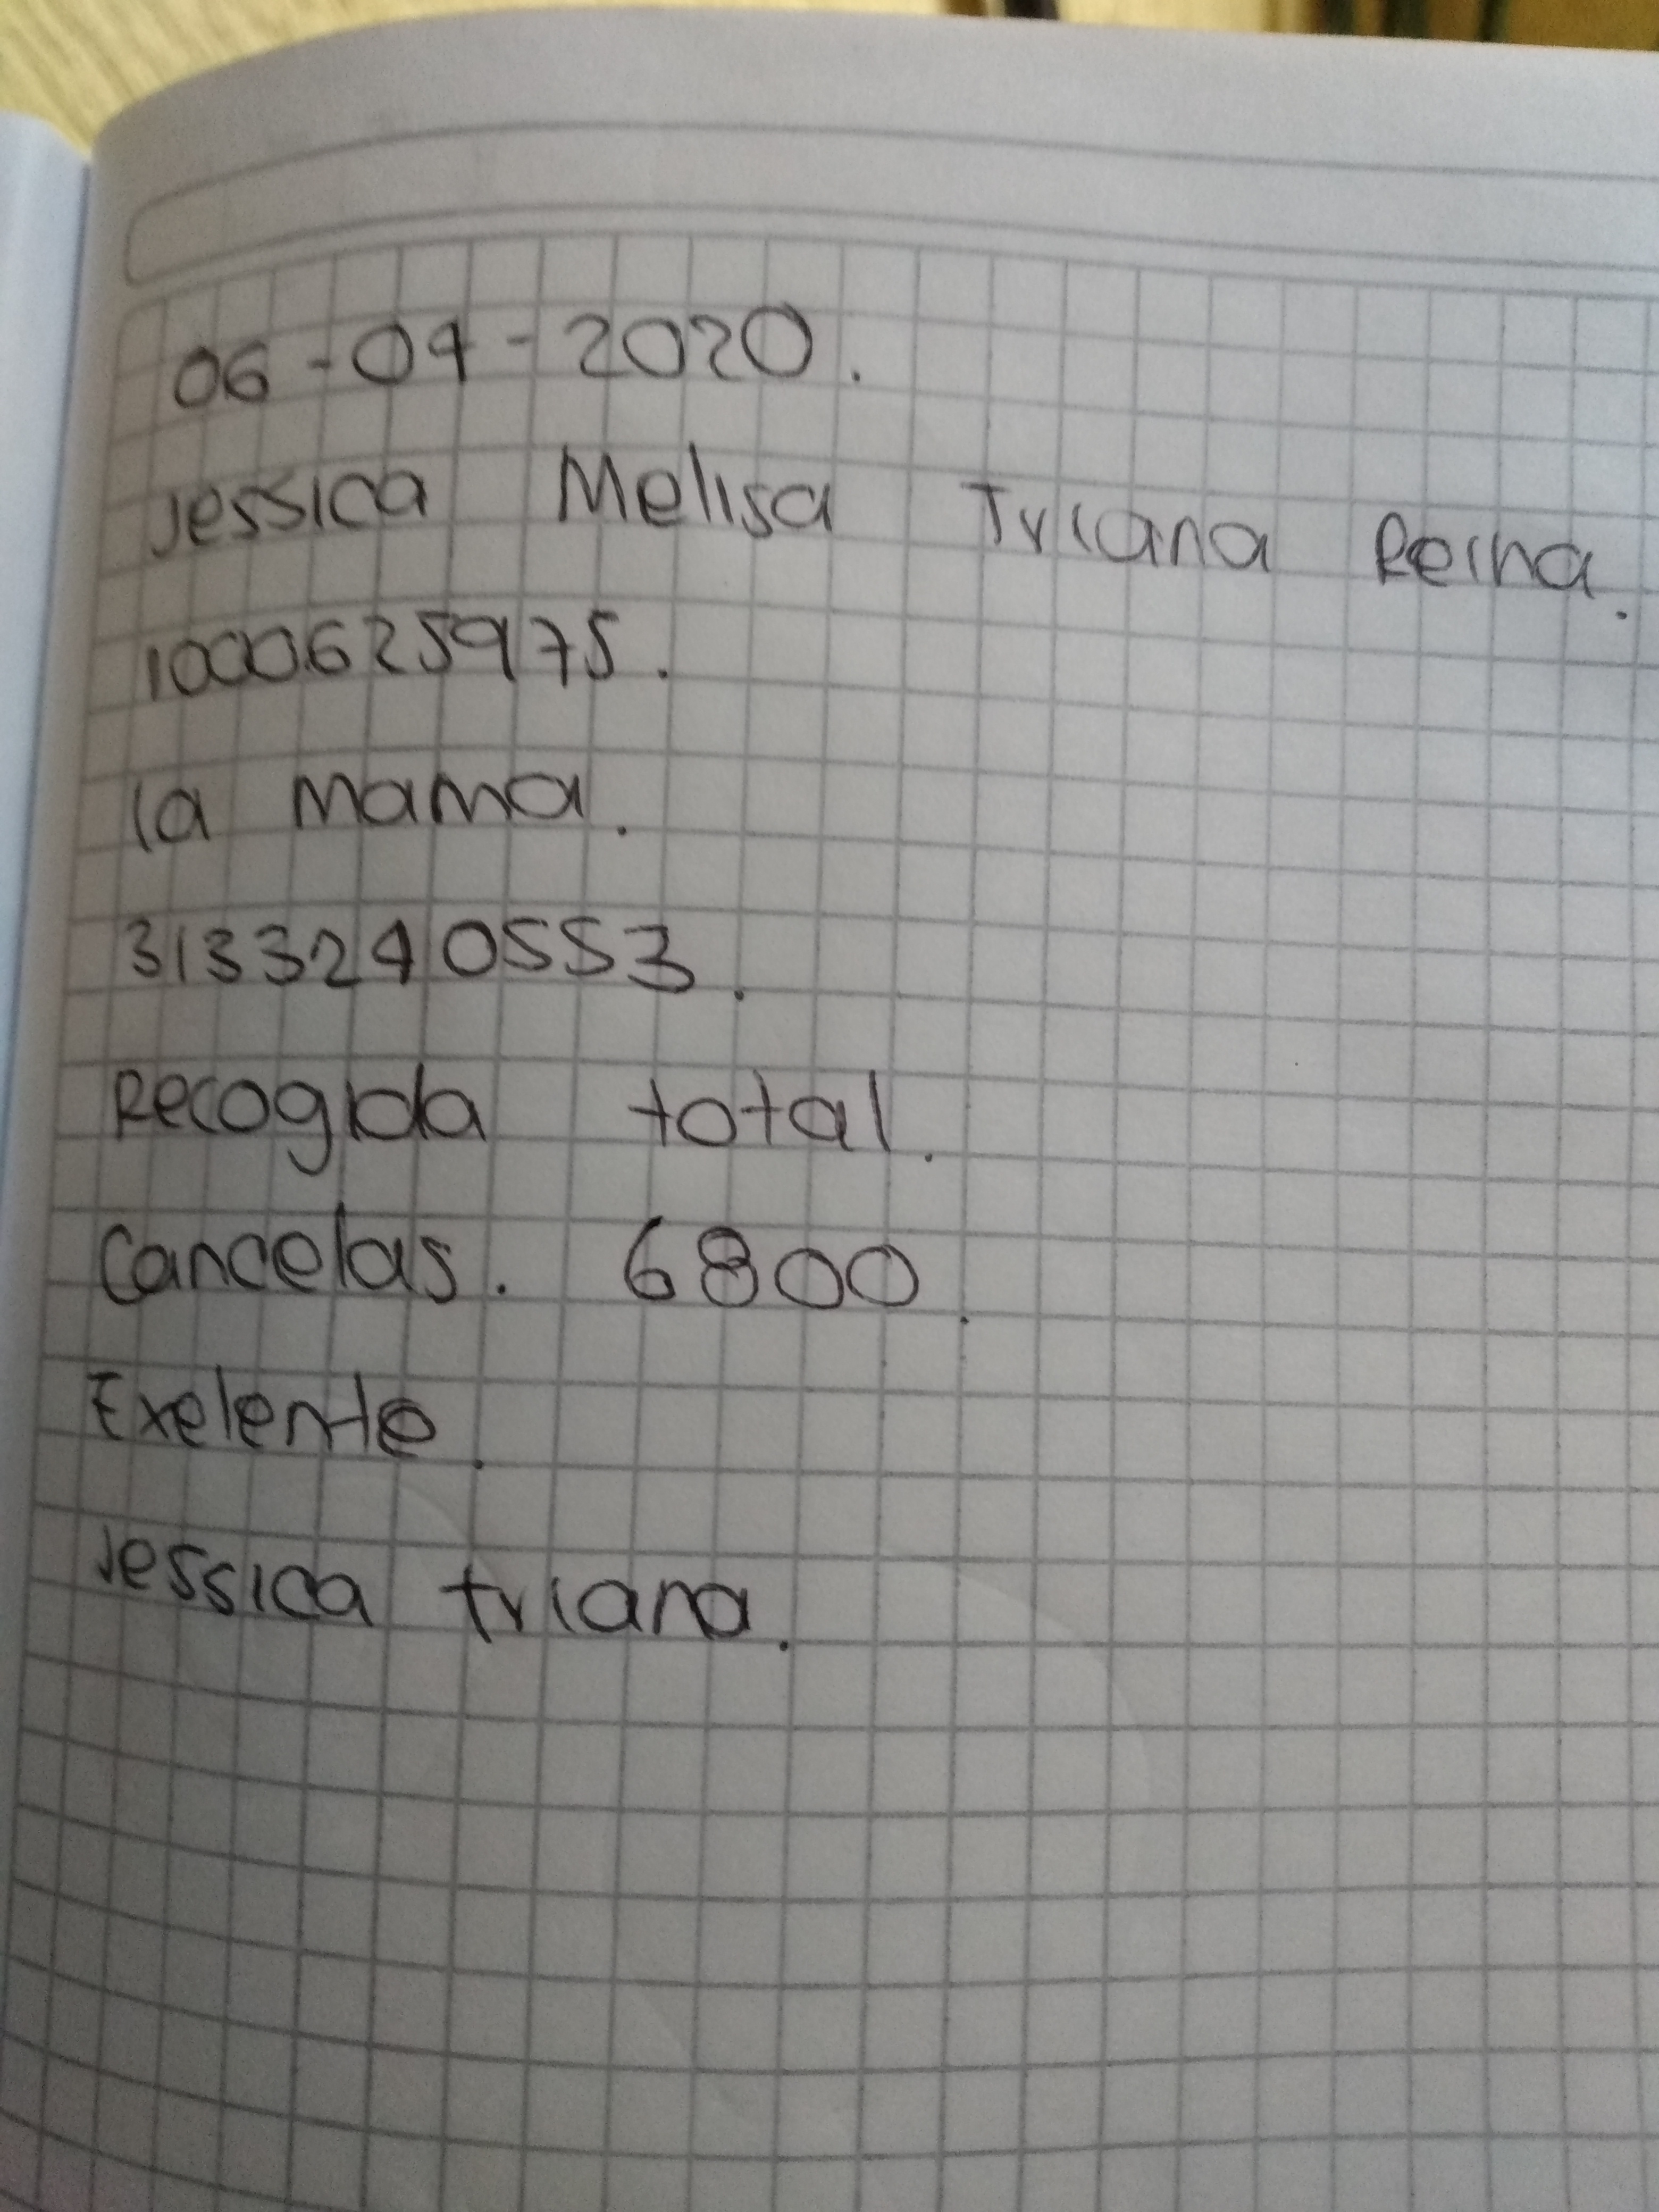 06-04-2020.
Jessica Melisa Triana Reina.
1000625975.
la mama.
3133240553.
Recogida total.
Cancelas. 6800.
Exelente.
Jessica triana.